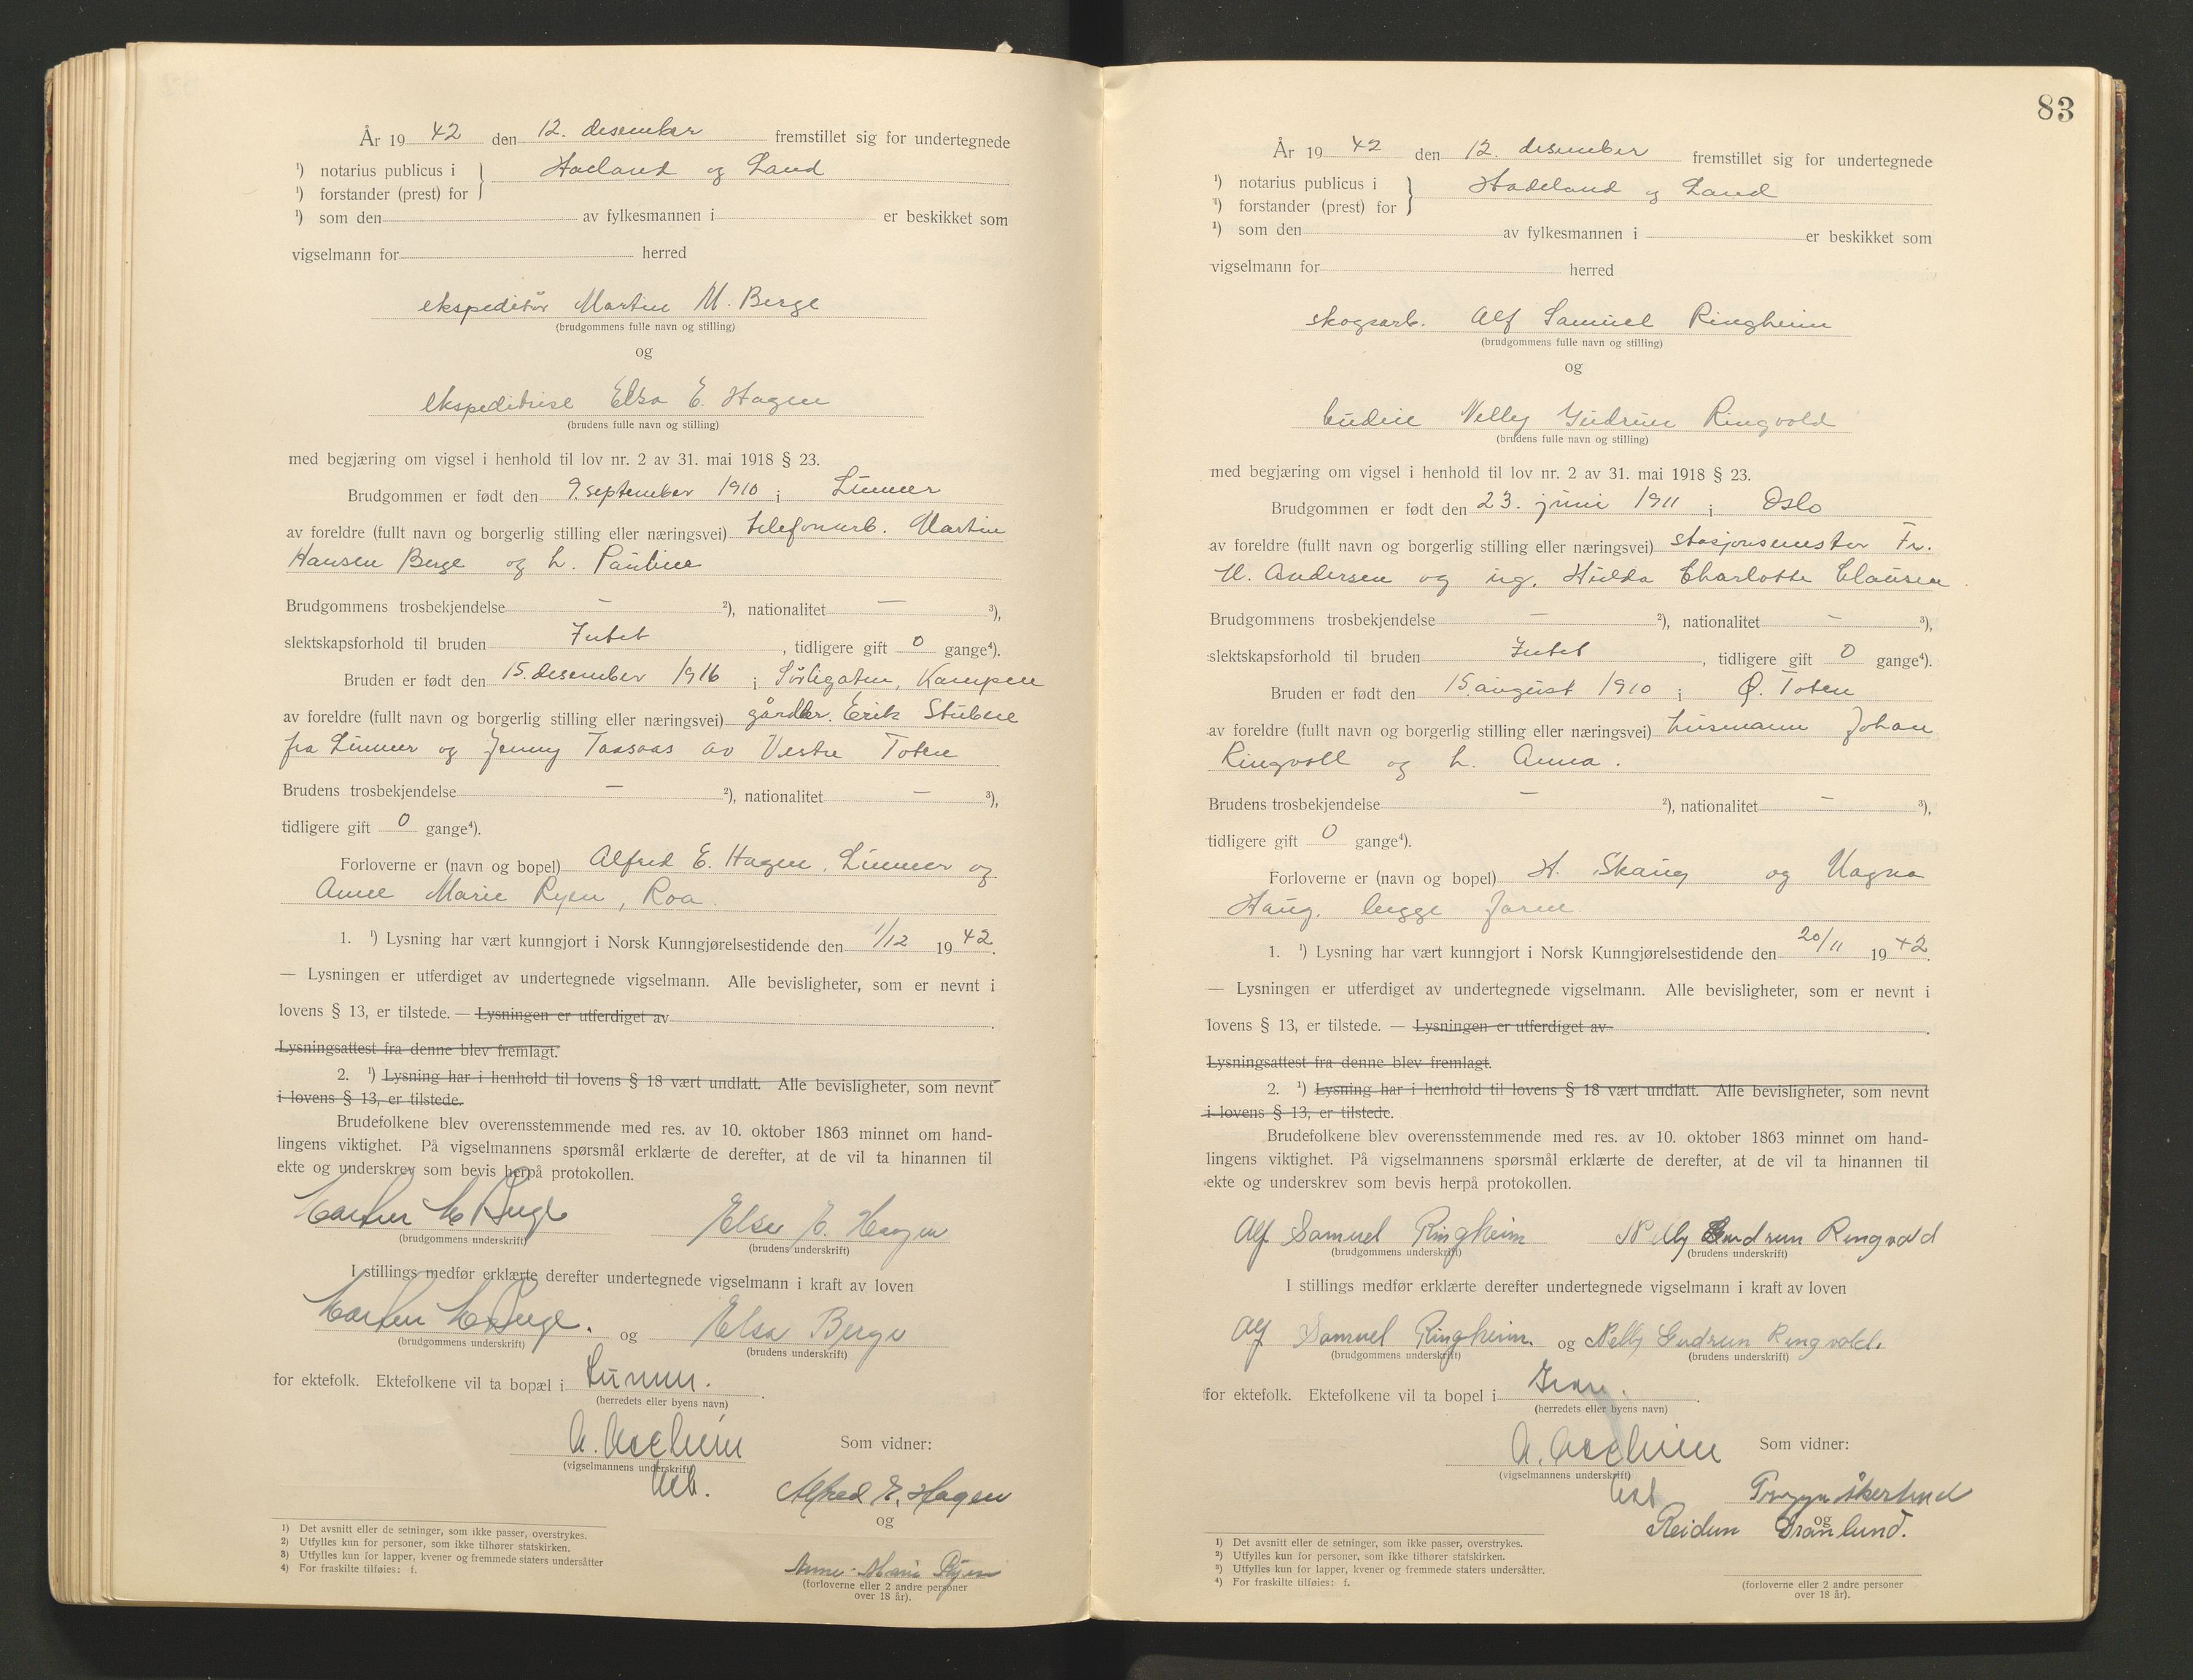 År 19 42 den 12. desember fremstillet sig for undertegnede
¹) notarius publicus i } Haeland og Land
¹) forstander (prest) for
¹) som den av fylkesmannen i er beskikket som
vigselmann for herred
ekspeditør Martin M. Berge
(brudgommens fulle navn og stilling)
og
ekspeditrise Elsa E. Hagen
(brudens fulle navn og stilling)
med begjæring om vigsel i henhold til lov nr. 2 av 31. mai 1918 § 23.
Brudgommen er født den 9. september 1910 i Lunner
av foreldre (fullt navn og borgerlig stilling eller næringsvei) telefonarb. Martin
Hansen Berge og h. Pauline
Brudgommens trosbekjendelse — ²), nationalitet — ³),
slektskapsforhold til bruden Intet , tidligere gift 0 gange⁴).
Bruden er født den 15. desember 1916 i Sørligaten, Kampen
av foreldre (fullt navn og borgerlig stilling eller næringsvei) gårdbr. Erik Stubne
fra Lunner og Jenny Taasaas av Vestre Toten
Brudens trosbekjendelse — ²), nationalitet — ³),
tidligere gift 0 gange⁴).
Forloverne er (navn og bopel) Alfred E. Hagen, Lunner og
Anne Marie Ryen, Roa.
1. ¹) Lysning har vært kunngjort i Norsk Kunngjørelsestidende den 1/12 19 42.
— Lysningen er utferdiget av undertegnede vigselmann. Alle bevisligheter, som er nevnt i
lovens § 13, er tilstede. — Lysningen er utferdiget av .
Lysningsattest fra denne blev fremlagt.
2. ¹) Lysning har i henhold til lovens § 18 vært undlatt. Alle bevisligheter, som nevnt
i lovens § 13, er tilstede.
Brudefolkene blev overensstemmende med res. av 10. oktober 1863 minnet om hand-
lingens viktighet. På vigselmannens spørsmål erklærte de derefter, at de vil ta hinannen til
ekte og underskrev som bevis herpå protokollen.
Martin M Berge Elsa E. Hagen
(brudgommens underskrift) (brudens underskrift)
I stillings medfør erklærte derefter undertegnede vigselmann i kraft av loven
Martin M Berge. og Elsa Berge
(brudgommens underskrift) (brudens underskrift)
for ektefolk. Ektefolkene vil ta bopæl i Lunner.
(herredets eller byens navn)
Som vidner:
(vigselmannens underskrift)
Alfred E. Hagen
og
Anne-Marie Ryen
(forloverne eller 2 andre personer
over 18 år).
1) Det avsnitt eller de setninger, som ikke passer, overstrykes.
2) Utfylles kun for personer, som ikke tilhører statskirken.
3) Utfylles kun for lapper, kvener og fremmede staters undersåtter
4) For fraskilte tilføies: f.
83
År 19 42 den 12. desember fremstillet sig for undertegnede
¹) notarius publicus i } Hadeland og Land
¹) forstander (prest) for
¹) som den av fylkesmannen i er beskikket som
vigselmann for herred
skogsarb. Alf Samuel Ringheim
(brudgommens fulle navn og stilling)
og
Nelly Gudrun Ringvold
(brudens fulle navn og stilling)
med begjæring om vigsel i henhold til lov nr. 2 av 31. mai 1918 § 23.
Brudgommen er født den 23. juni 1911 i Oslo
av foreldre (fullt navn og borgerlig stilling eller næringsvei) stasjonsmester Fr.
H. Andersen og ug. Hulda Charlotte Clausen.
Brudgommens trosbekjendelse — ²), nationalitet — ³),
slektskapsforhold til bruden Intet , tidligere gift 0 gange⁴).
Bruden er født den 15. august 1910 i Ø. Toten
av foreldre (fullt navn og borgerlig stilling eller næringsvei) husmann Johan
Ringvoll og h. Anna.
Brudens trosbekjendelse — ²), nationalitet — ³),
tidligere gift 0 gange⁴).
Forloverne er (navn og bopel) H. Skaug og Magna
Haug. begge Jaren
1. ¹) Lysning har vært kunngjort i Norsk Kunngjørelsestidende den 20/11 19 42.
— Lysningen er utferdiget av undertegnede vigselmann. Alle bevisligheter, som er nevnt i
lovens § 13, er tilstede. — Lysningen er utferdiget av .
Lysningsattest fra denne blev fremlagt.
2. ¹) Lysning har i henhold til lovens § 18 vært undlatt. Alle bevisligheter, som nevnt
i lovens § 13, er tilstede.
Brudefolkene blev overensstemmende med res. av 10. oktober 1863 minnet om hand-
lingens viktighet. På vigselmannens spørsmål erklærte de derefter, at de vil ta hinannen til
ekte og underskrev som bevis herpå protokollen.
Alf Samuel Ringheim Nelly Gudrun Ringvold
(brudgommens underskrift) (brudens underskrift)
I stillings medfør erklærte derefter undertegnede vigselmann i kraft av loven
Alf Samuel Ringheim. og Nelly Gudrun Ringvold.
(brudgommens underskrift) (brudens underskrift)
for ektefolk. Ektefolkene vil ta bopel i Gran.
(herredets eller byens navn)
Som vidner:
(vigselmannens underskrift)
Åkerlund
og
Reidun Granlund.
(forloverne eller 2 andre personer
over 18 år).
1) Det avsnitt eller de setninger, som ikke passer, overstrykes.
2) Utfylles kun for personer, som ikke tilhører statskirken.
3) Utfylles kun for lapper, kvener og fremmede staters undersåtter.
4) For fraskilte tilføies: f.